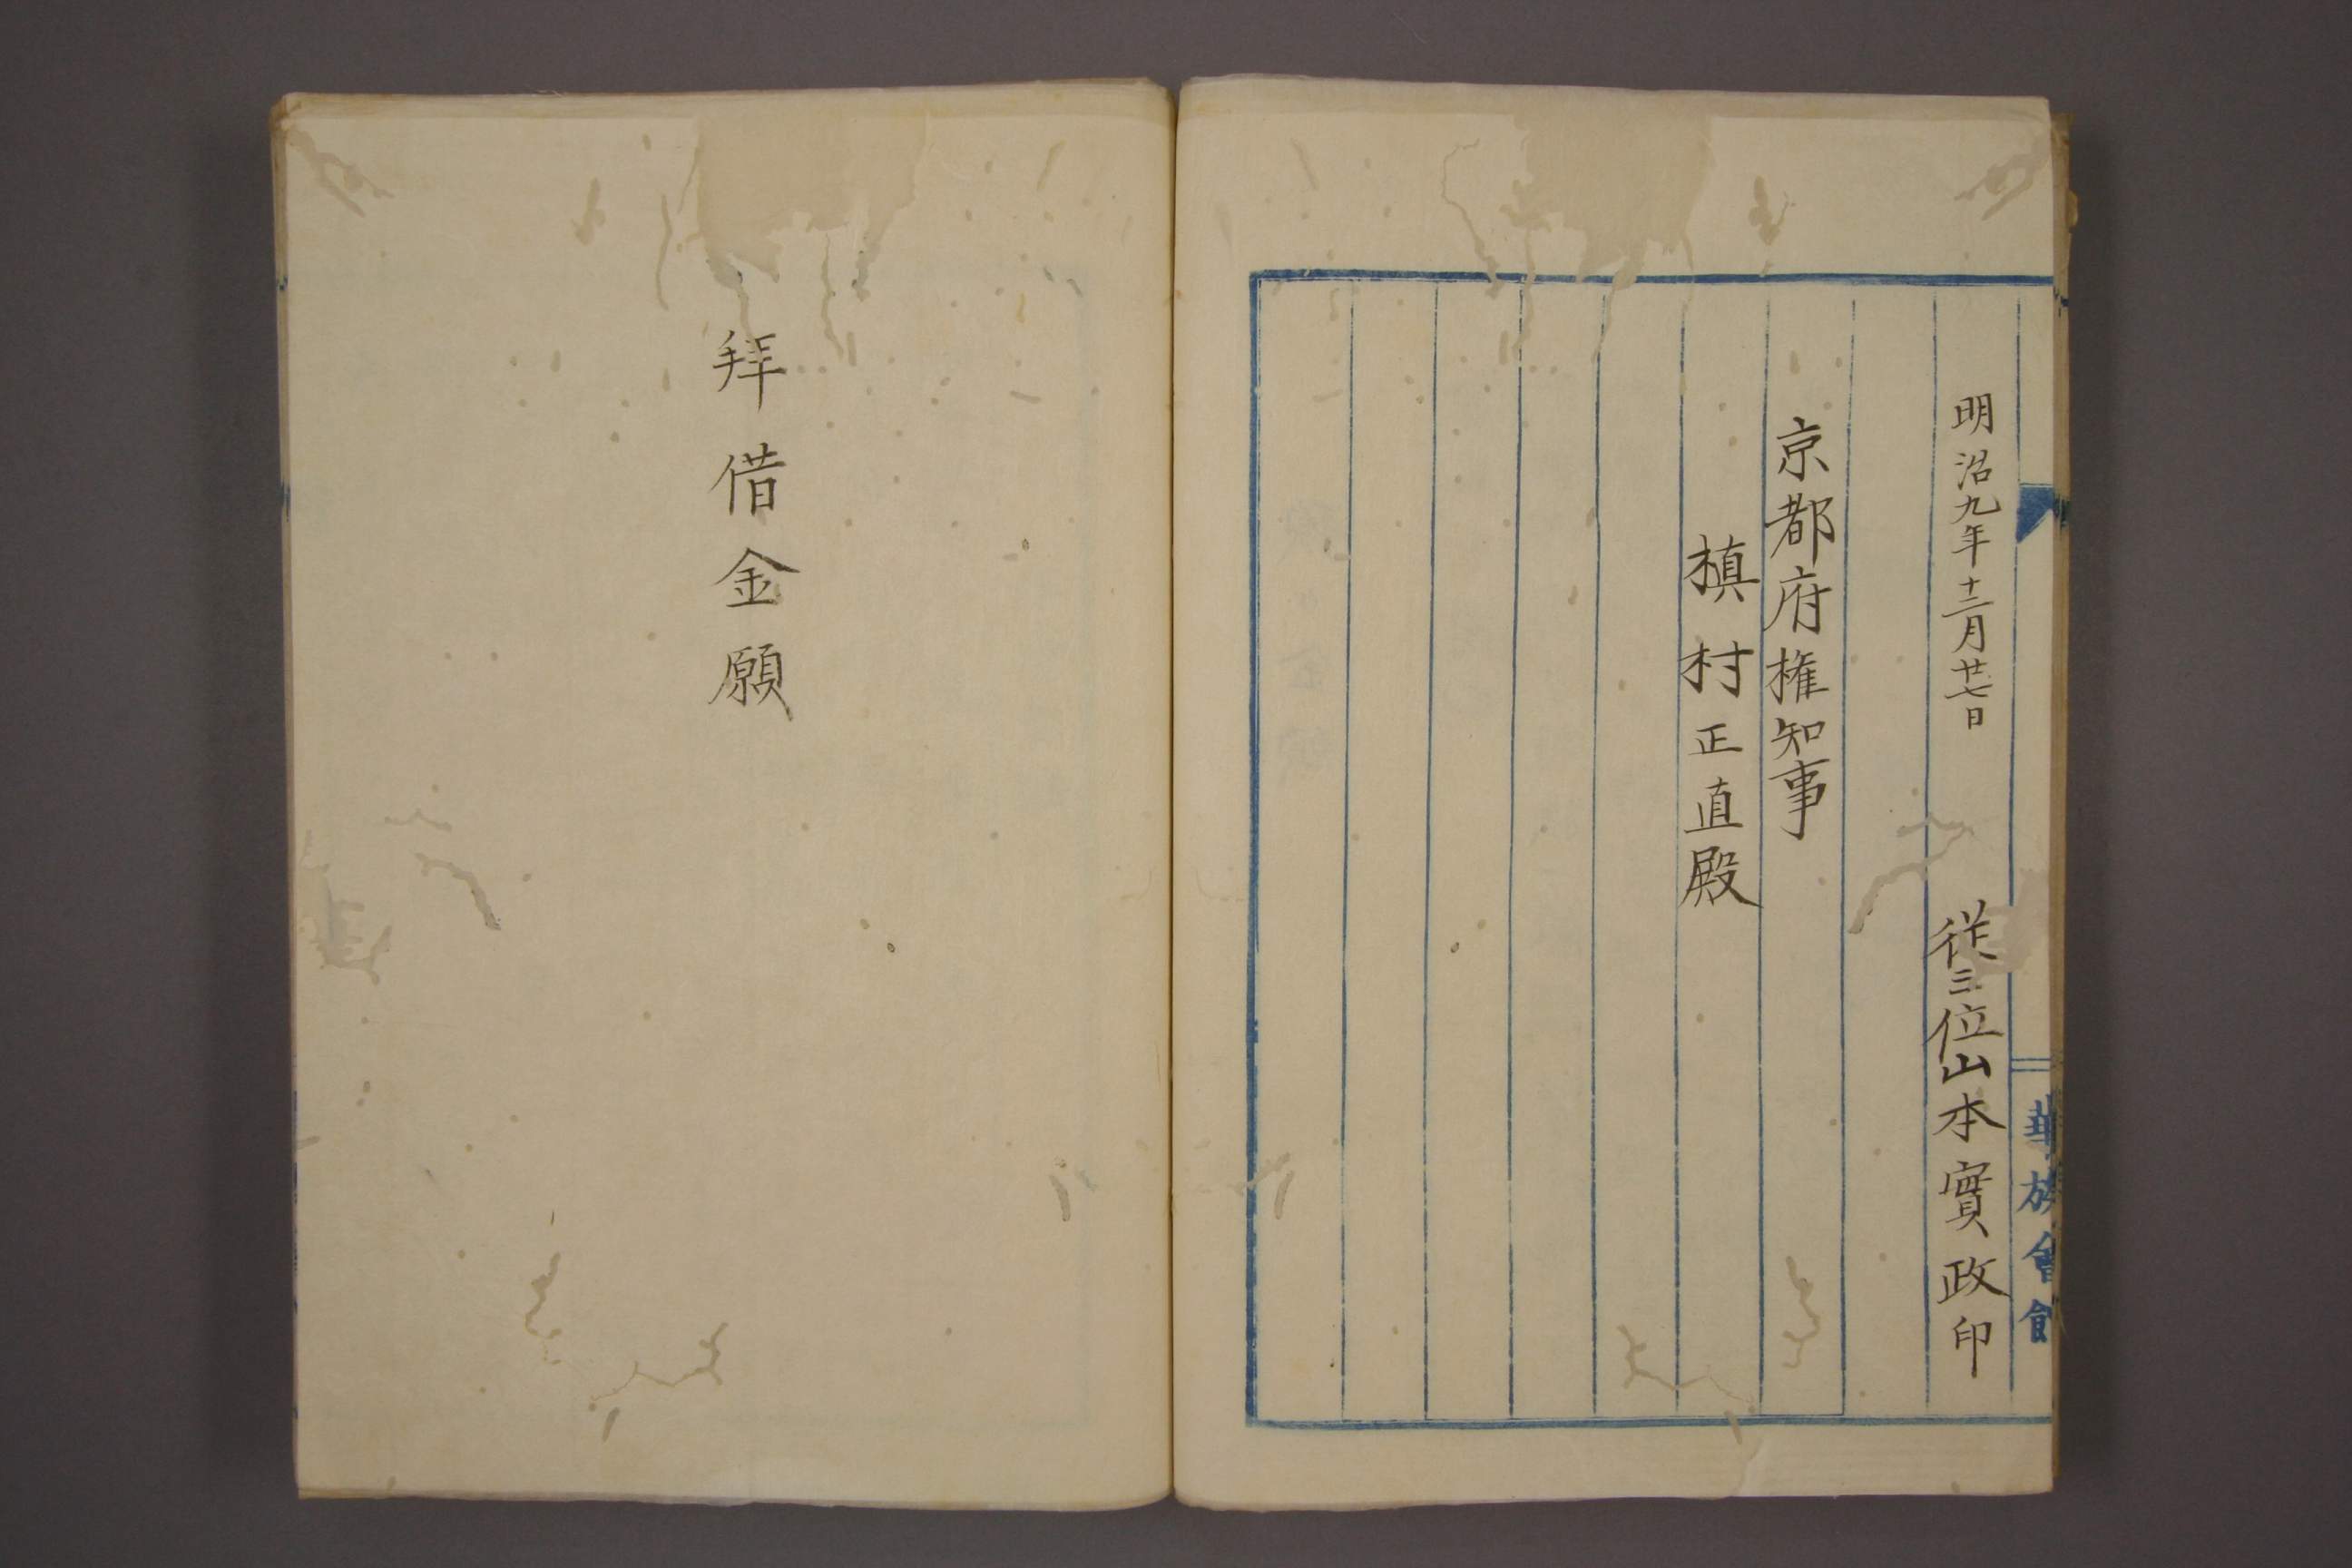 華族會館
明治九年十二月廿七日 従三位山本實政印
京都府権知事
槙村正直殿
拜借金願